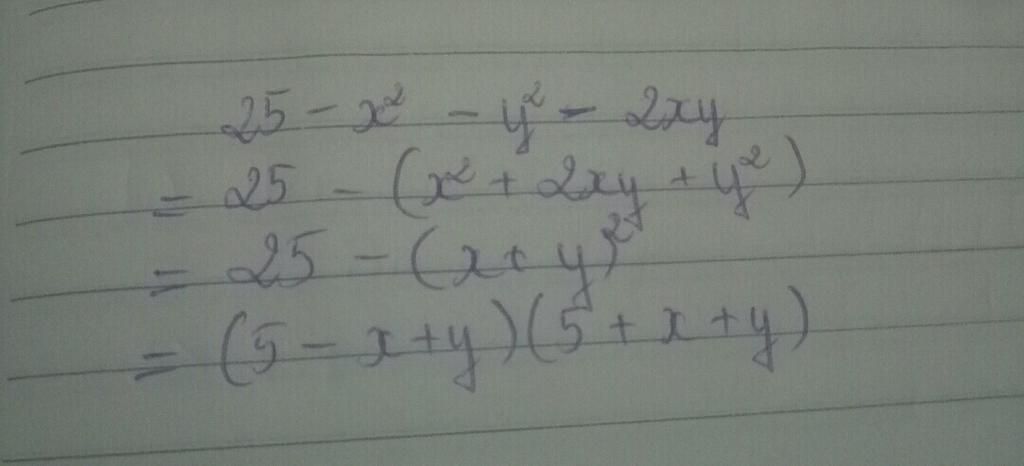 25 - x² - y² - 2xy
= 25 - (x² + 2xy + y²)
= 25 - (x + y)²
= (5 - x + y)(5 + x + y)